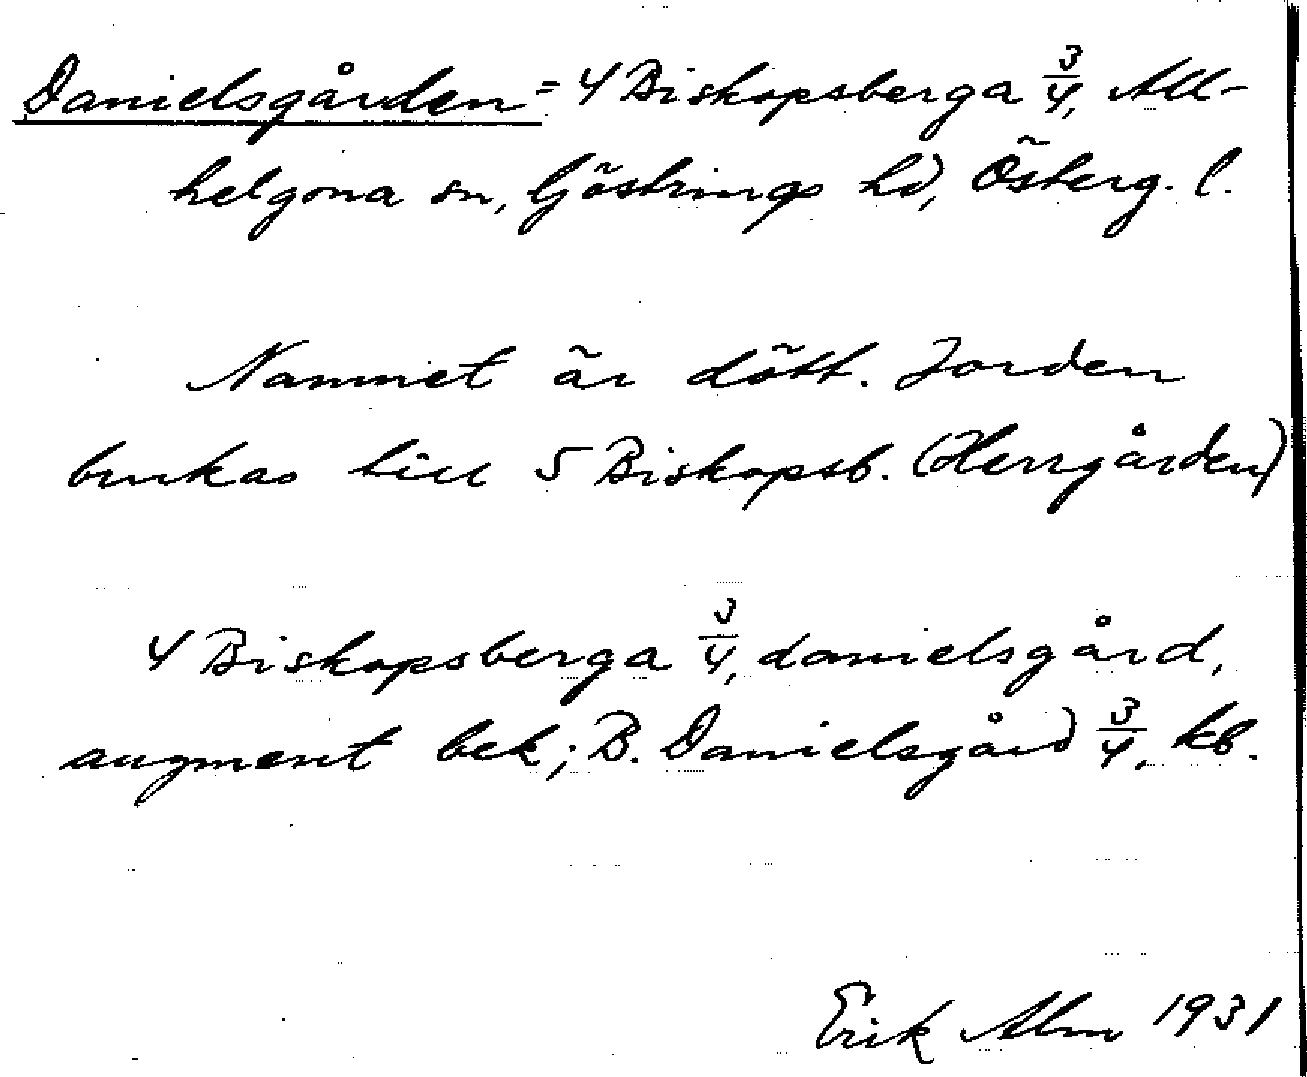 Danielsgården = 4 Biskopsberga 3/4, All-
helgona sn, Göstrings hd, Österg. l.
Namnet är dött. Jorden
brukas till 5 Biskopsb. (Herrgården)
4 Biskopsberga 3/4, danielsgård,
augment bek; B. Danielsgård 3/4, kb.
Erik Alm 1931